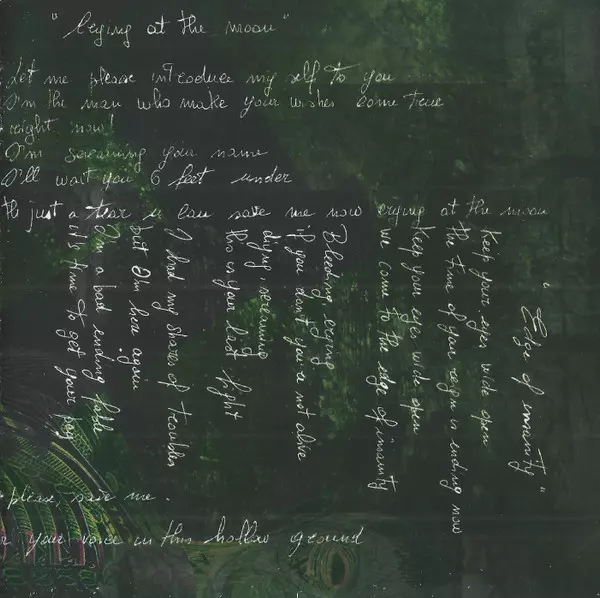 "Crying at the moon"
Let me please introduce my self to you
I'm the man who make your wishes come true
right now!
I'm screaming your name
I'll wait you 6 feet under
just a tear can save me now crying at the moon
please, save me.
your voice in this hollow ground
"Edge of insanity"
Keep your eyes wide open
the time of your reign is ending now
Keep your eyes wide open
we come to the edge of insanity
Bleeding crying
if you don't you're not alive
dying screaming
this is your last fight
I had my shares of troubles
but I'm here again
I'm a bad ending fable
it's time to get your pay